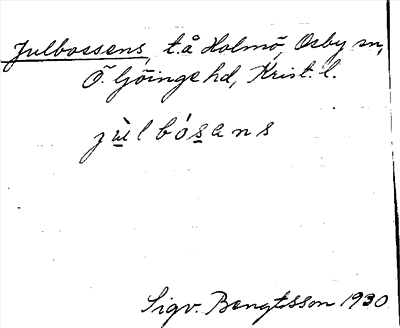 Julbossens, t.å Holmö, Osby sn,
Ö. Göinge hd, Krist. l.
jùlbósans
Sigv. Bengtsson 1930